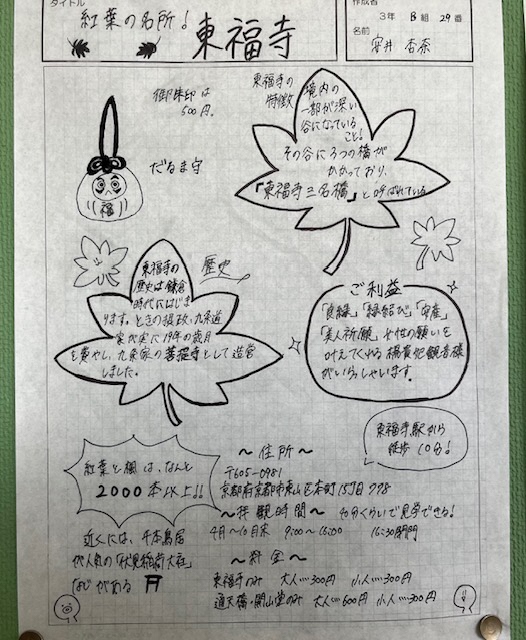 タイトル
紅葉の名所!
東福寺
作成者
3年 B組 29番
名前
安井 杏奈
御朱印は
500円。
だるま守
福
東福寺の
特徴
境内の
一部が深い
谷になっている
こと!
その谷に3つの橋が
かかっており、
「東福寺三名橋」と呼ばれている
歴史
東福寺の
歴史は鎌倉
時代にはじま
ります。ときの摂政、九条道
家が実に19年の歳月
を費やし、九条家の菩提寺として造営
しました。
ご利益
「良縁」「縁結び」「安産」
「美人祈願」女性の願いを
叶えてくれる楊貴妃観音様
がいらっしゃいます。
東福寺駅から
徒歩10分!
紅葉と楓は、なんと
2000本以上!!
近くには、千本鳥居
が人気の「伏見稲荷大社」
などがある
~住所~
〒605-0981
京都府京都市東山区本町15丁目778
~拝観時間~ 40分くらいで見学できる!
4月~10月末 9:00~16:00 16:30閉門
~料金~
東福寺のみ 大人…300円 小人…300円
通天橋・開山堂のみ 大人…600円 小人…300円